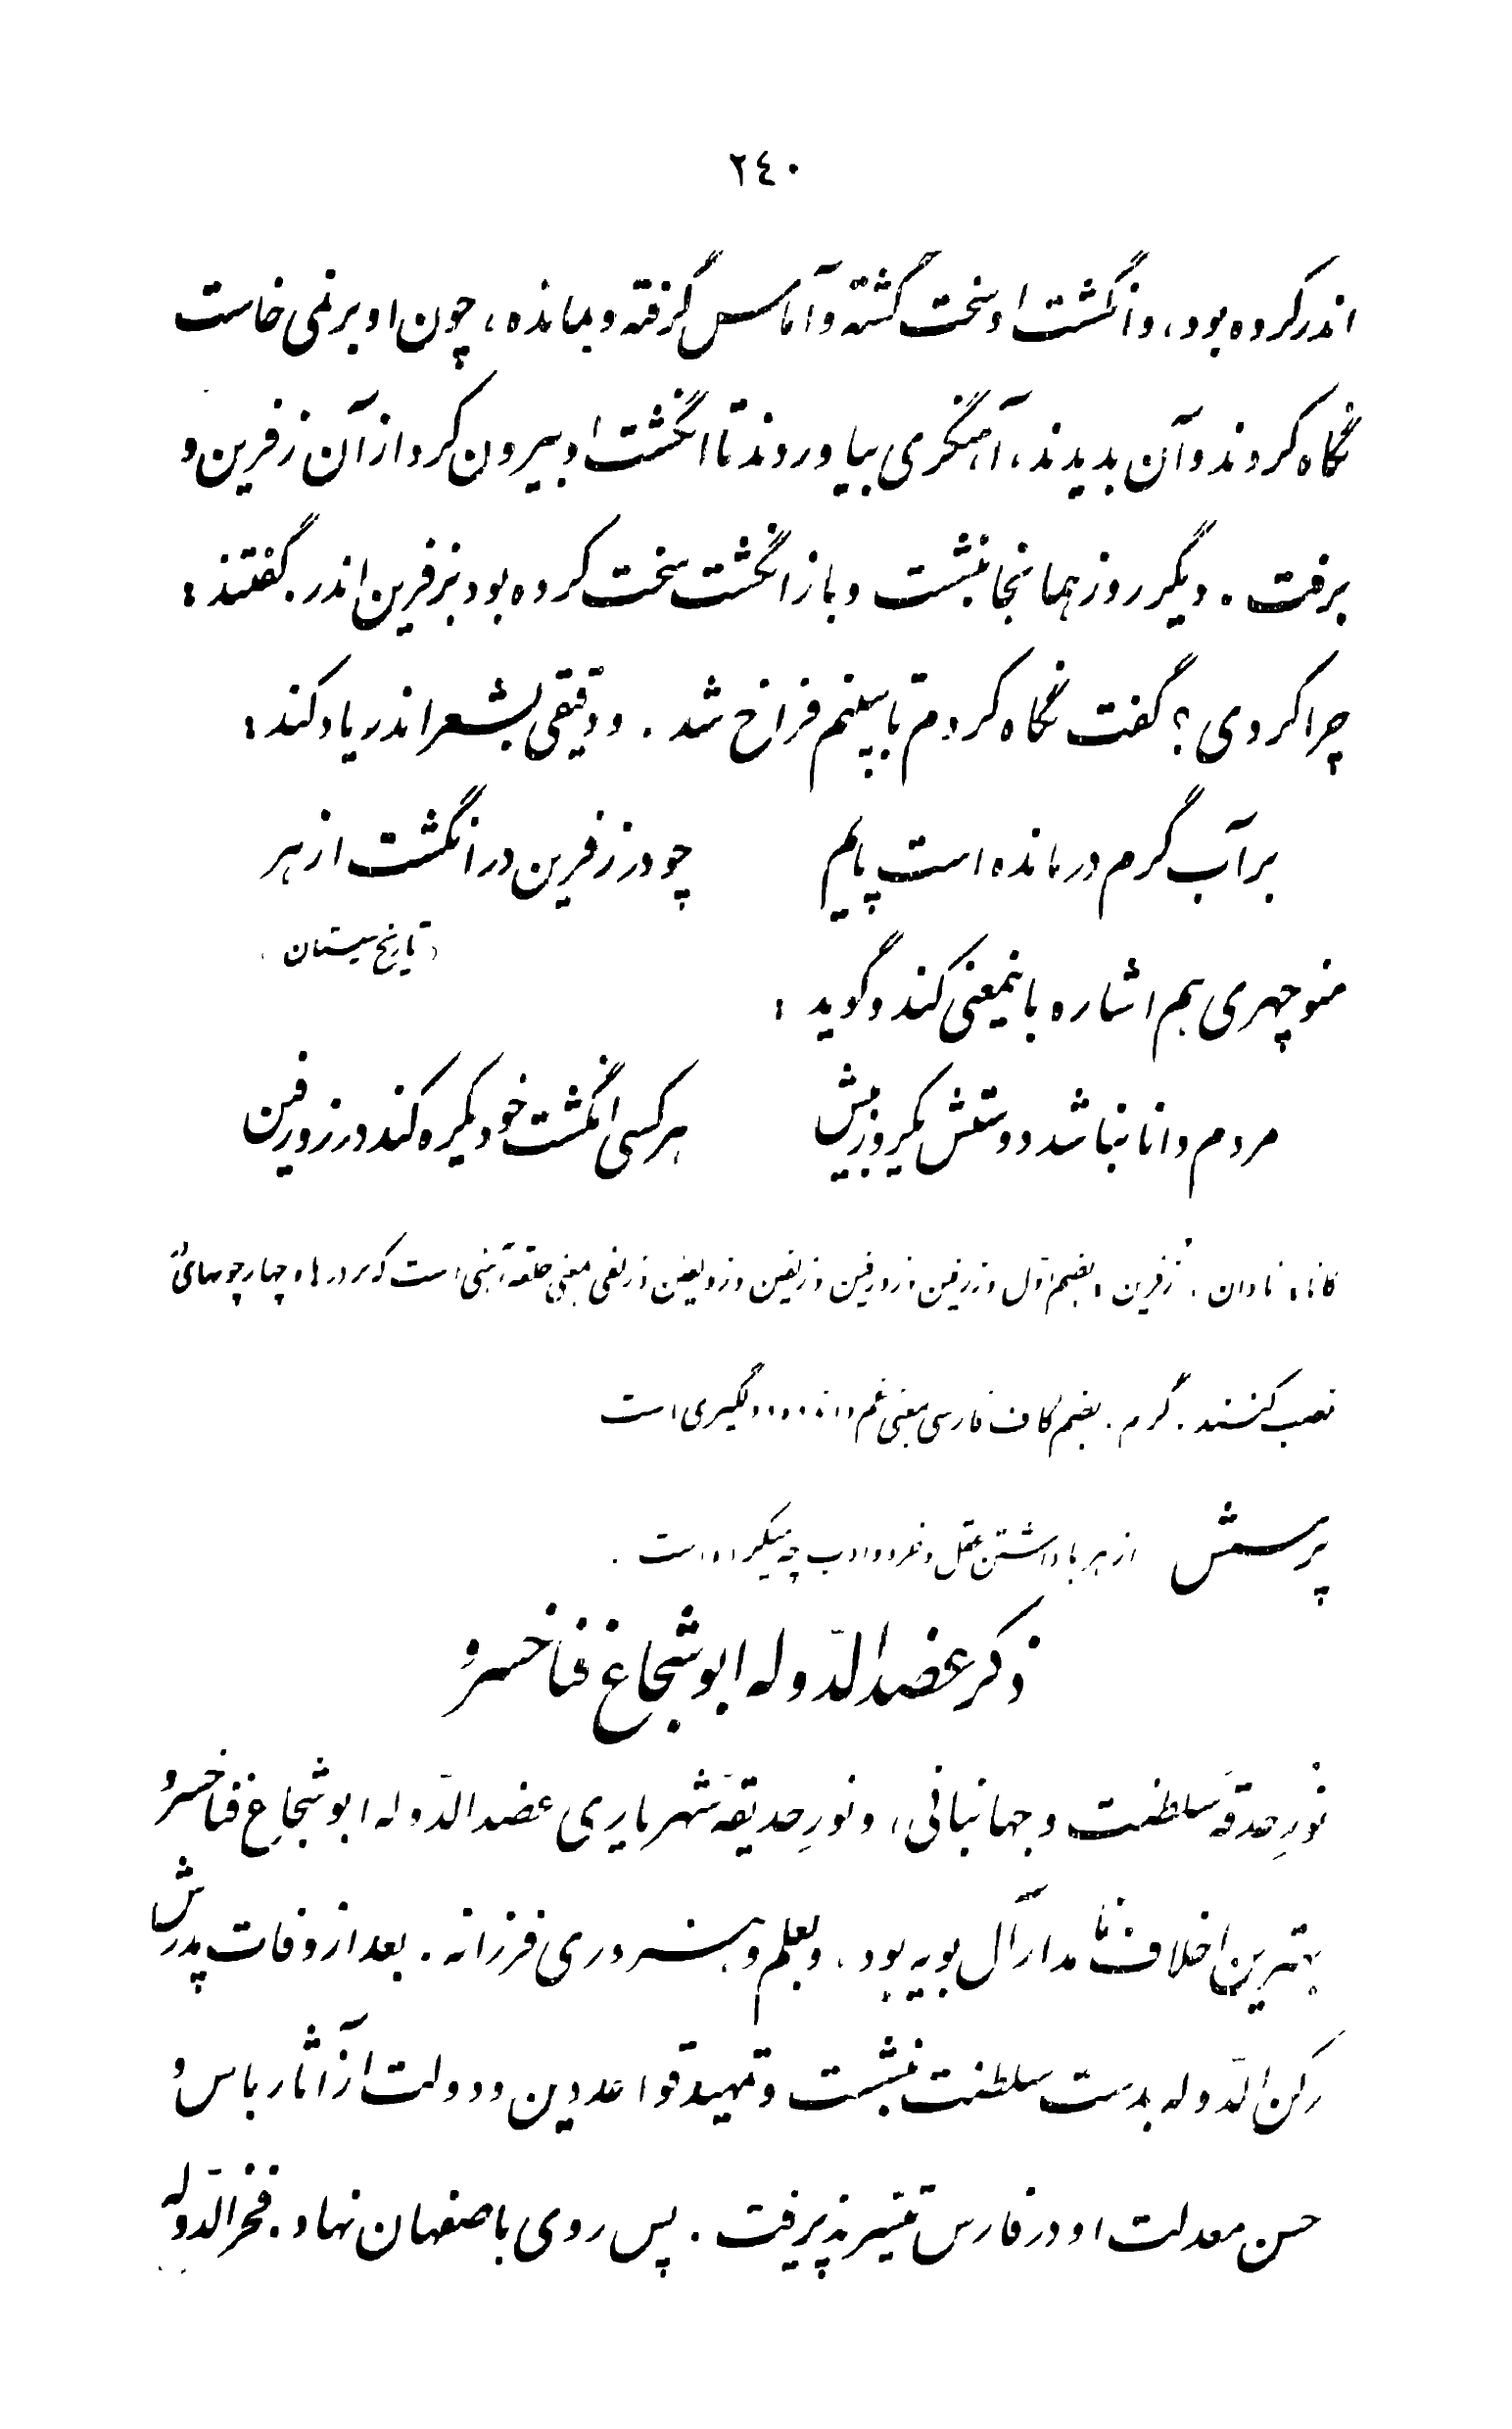 ۲٤۰
اندر کرده بود، و انگشت او سخت گشته و آماس گرفته و بمانده، چون او برنمی خاست
نگاه کردند و آن بدیدند، آهنگری بیاوردند تا انگشت او بیرون کرد از آن زفرین و
برفت. دیگر روز همانجا بنشست و باز انگشت سخت کرده بود بزفرین اندر. گفتند:
چرا کردی؟ گفت نگاه کردم تا ببینم فراخ شد. و دقیقی بشعر اندر یاد کند:
بر آب گرم درمانده است پایم چو در زفرین در انگشت ازهر
(تاریخ سیستان)
منوچهری هم اشاره باینمعنی کند و گوید:
مردم دانا نباشد دوستش یکروز بیش هر کسی انگشت خود یکره کند در زورفین
کانا، نادان. زُفرین، بضم اول و زرفین و زورفین و زلفین و زولفین و زلفی بمعنی حلقهٔ آهنی است که بر درها و چهارچوبهای آن
نصب کنند. گُرم. بضم کاف فارسی بمعنی غم و اندوه و دلگیری است
پرسش ازهر با داشتن عقل و خرد و ادب چه میکرده است.
ذکر عضدالدّوله ابوشجاع فناخسرو
نورِ حدقهٔ سلطنت و جهانبانی، و نَورِ حدیقهٔ شهریاری عضدالدّوله ابوشجاعِ فناخسرو
بهترین اخلاف نامدار آل بویه بود، و بعلم و هنروری فرزانه. بعد از وفات پدرش
رکن الدّوله بدست سلطنت بنشست و تمهید قواعد دین و دولت از آثار باس و
حسن معدلت او در فارس تیسیر پذیرفت. پس روی باصفهان نهاد. فخرالدّوله